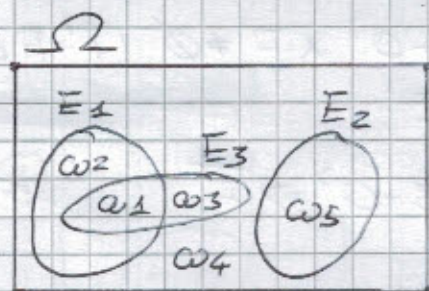 Ω
E1 E2
ω2 E3
ω1 ω3 ω5
ω4